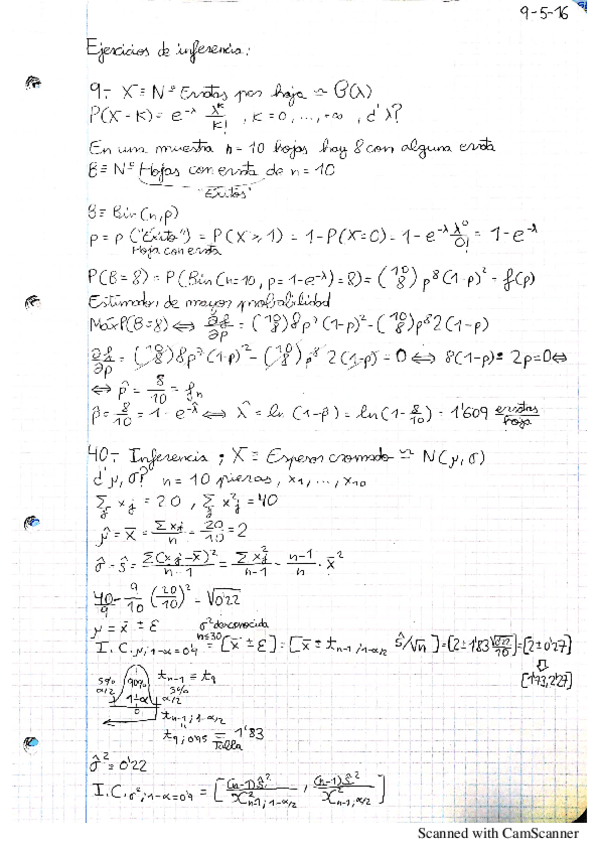 9-5-16
Ejercicios de inferencia:
9.- X ≡ Nº Erratas por hoja ~ P(λ)
P(X=K) = e^-λ λ^K/K! , K=0,...,∞ , ¿λ?
En una muestra n=10 hojas hay 8 con alguna errata
B ≡ Nº Hojas con errata de n=10
"Éxitos"
B ≡ Bin(n,p)
p = p ("Éxito") = P(X≥1) = 1-P(X=0) = 1-e^-λ λ^0/0! = 1-e^-λ
Hoja con errata
P(B=8) = P(Bin(n=10, p=1-e^-λ)=8) = (10 8) p^8 (1-p)^2 = f(p)
Estimador de mayor probabilidad
Máx P(B=8) ⟺ ∂f/∂p = (10 8) 8p^7 (1-p)^2 - (10 8) p^8 2(1-p)
∂f/∂p = (10 8) 8p^7 (1-p)^2 - (10 8) p^8 2(1-p) = 0 ⟺ 8(1-p) = 2p = 0 ⟺
⟺ p̂ = 8/10 = fn
p̂ = 8/10 = 1 - e^-λ ⟺ λ^ = ln (1-p̂) = ln(1-8/10) = 1'609 erratas/hoja
40.- Inferencia ; X ≡ Espesor cromado ~ N(μ,σ)
¿μ,σ? n=10 piezas, x1,...,x10
Σj xj = 20 , Σj xj^2 = 40
μ̂ = x̄ = Σxj/n = 20/10 = 2
σ̂ = ŝ = Σ(xj-x̄)^2/n-1 = Σxj^2/n-1 - n-1/n · x̄^2
40/9 - 9/10 (20/10)^2 = √0'22
μ = x̄ ± ε
σ^2 desconocida
n≤30
I.C. μ,1-α=0'9 = [x̄ ± ε] = [x̄ ± tn-1;1-α/2 ŝ/√n] = [2 ± 1'83 √0'22/10] = [2±0'27]
⇓
[1'73,2'27]
5% α/2 90% 1-α 5% α/2 0
tn-1 ≡ t9
tn-1;1-α/2
"
t9;0'95 = 1'83
Tabla
σ̂^2 = 0'22
I.C. σ^2;1-α=0'9 = [(n-1)ŝ^2/χ^2 n-1;1-α/2 , (n-1)ŝ^2/χ^2 n-1;α/2]
Scanned with CamScanner